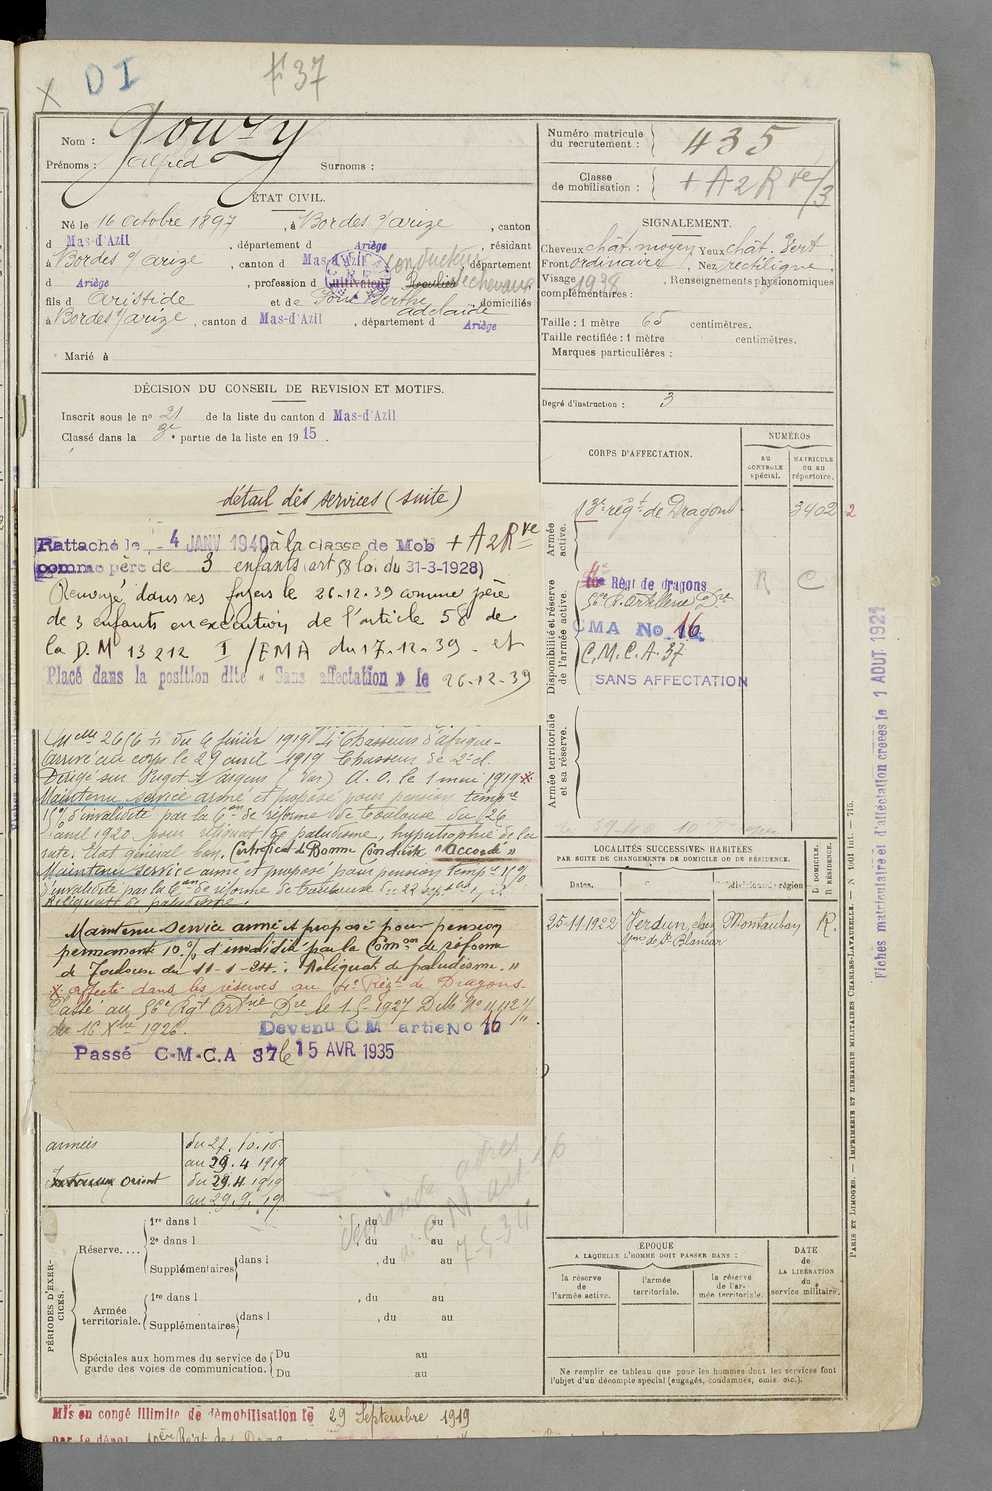 X DI # 37
Nom : Gouzy
Prénoms : Alfred Surnoms :
ÉTAT CIVIL.
Né le 16 octobre 1897, à Bordes s/arize, canton
d Mas-d'Azil, département d Ariège, résidant
à Bordes s/arize, canton d Mas-d'Azil, département
d Ariège, profession d Cultivateur conducteur chevaux
fils d Aristide et de Berthe adelaïde, domiciliés
à Bordes s/arize, canton d Mas-d'Azil, département d Ariège
Marié à
DÉCISION DU CONSEIL DE REVISION ET MOTIFS.
Inscrit sous le nº 21 de la liste du canton d Mas-d'Azil
Classé dans la 3e partie de la liste en 1915.
détail des services (suite)
Rattaché le 4 JANV 1940 à la classe de Mob + A2Rve
comme père de 3 enfants (art 58 loi du 31-3-1928)
Renvoyé dans ses foyers le 26.12.39 comme père
de 3 enfants en exécution de l'article 58 de
la D.M 13212 I/EMA du 17.12.39 - et
Placé dans la position dite « Sans affectation » le 26-12-39
du 6 février 1919 4e Chasseurs d'afrique-
arrivé au corps le 29 avril 1919 Chasseur de 2e cl.
Dirigé sur Puget s/ argens (Var) A. O. le 1 mai 1919 x
Maintenu service armé et proposé pour pension tempre
15% d'invalidité par la Con de réforme de Toulouse du 26
avril 1920 pour reliquat de paludisme, hypertrophie de la
rate. Etat général bon. Certificat de Bonne Conduite "accordé"
Maintenu service armé et proposé pour pension tempre
d'invalidité par la Con de réforme de Toulouse
Reliquat de paludisme.
Maintenu service armé et proposé pour pension
permanente 10% d'invalidité par la Comon de réforme
de Toulouse du 11-1-24 : Reliquat de paludisme. "
x affecté dans les réserves au 4e Régt de Dragons
Passé au 56e Rgt Artrie Dre le 1-5-1927 DM Nº
du 16 Xbre 1926. Devenu CM artie No 16
Passé C-M-C.A 37 le 15 AVR. 1935
armées du 27.10.16
au 29.4 1919
Orient du 29.4 1919
au 29.9.19
PÉRIODES D'EXERCICES.
Réserve....
1re dans l , du au
2e dans l , du au
Supplémentaires dans l , du au
Armée territoriale.
1re dans l , du au
Supplémentaires dans l , du au
Spéciales aux hommes du service de garde des voies de communication.
Du au
Du au
demandé adres
CM art 16
7-5-34
Mis en congé illimité de démobilisation le 29 Septembre 1919
par le dépôt
Numéro matricule du recrutement : 435
Classe de mobilisation : + A2Rve/3
SIGNALEMENT.
Cheveux chât. moyen Yeux chât. vert
Front ordinaire, Nez rectiligne
Visage , Renseignements physionomiques
complémentaires :
1938
Taille : 1 mètre 65 centimètres.
Taille rectifiée : 1 mètre centimètres.
Marques particulières :
Degré d'instruction : 3
CORPS D'AFFECTATION.
NUMÉROS
AU CONTROLE spécial.
MATRICULE ou au répertoire.
Armée active.
3e régt de Dragons 3402 2
Disponibilité et réserve de l'armée active.
4e Régt de dragons R C
56e R. Artillerie Dre
CMA No 16
C.M.C.A. 37
SANS AFFECTATION
Armée territoriale et sa réserve.
LOCALITÉS SUCCESSIVES HABITÉES
PAR SUITE DE CHANGEMENTS DE DOMICILE OU DE RÉSIDENCE.
Dates. subdivisions région
D. DOMICILE. R. RÉSIDENCE.
25-11-1922 Verdun, chez Montauban R.
Mme de St Blancar
ÉPOQUE
A LAQUELLE L'HOMME DOIT PASSER DANS :
la réserve de l'armée active.
l'armée territoriale.
la réserve de l'armée territoriale.
DATE de LA LIBÉRATION du service militaire.
Ne remplir ce tableau que pour les hommes dont les services font
l'objet d'un décompte spécial (engagés, condamnés, omis, etc.).
PARIS ET LIMOGES. — IMPRIMERIE ET LIBRAIRIE MILITAIRES CHARLES-LAVAUZELLE. — N° 1601 Int. — 715.
Fiches matriculaire et d'affectation créées le 1 AOUT 1921